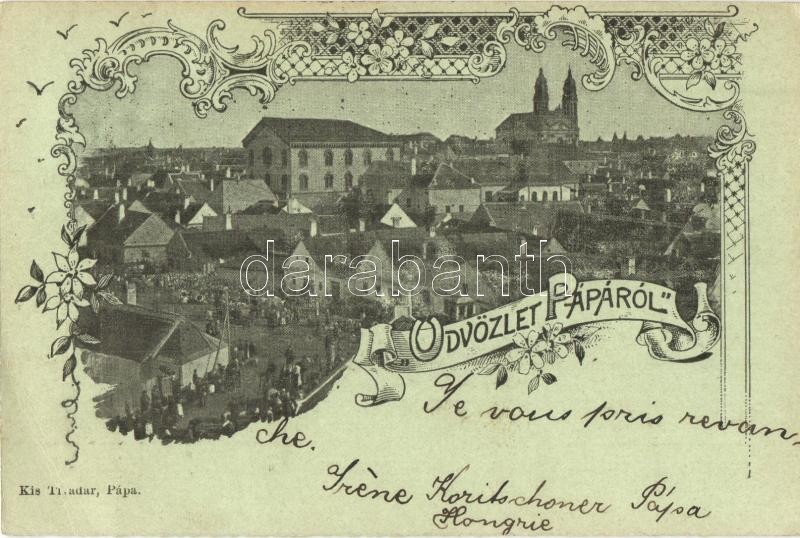 darabanth.com
ÜDVÖZLET PÁPÁRÓL"
Je vous pris revan-
che.
Irène Koritschoner Pápa
Hongrie
Kis Tivadar, Pápa.